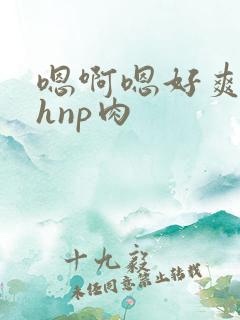 嗯啊嗯好爽
hnp肉
十九毅
未经同意禁止转载